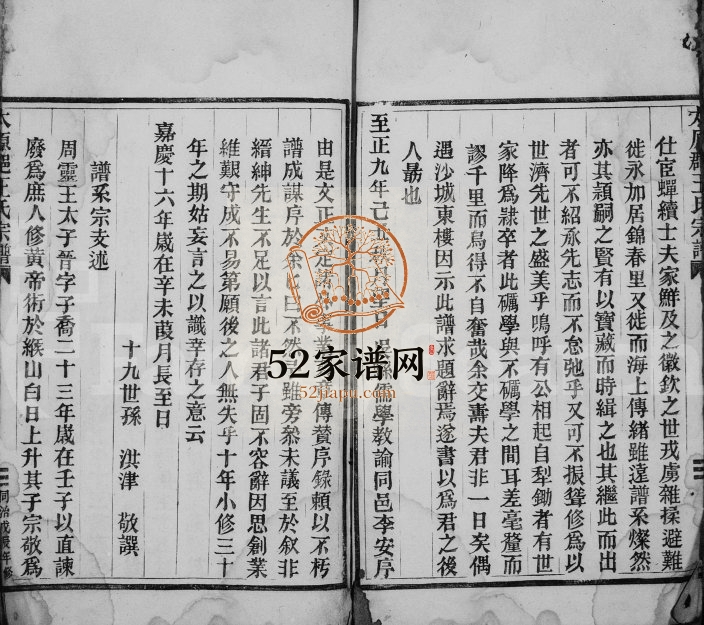 太原郡王氏宗譜
仕宦蟬續士夫家鮮及之徽欽之世戎虜雜揉避難
徙永加居錦春里又徙而海上傳緒雖遠譜系燦然
亦其頴嗣之賢有以寶藏而時緝之也其繼此而出
者可不紹承先志而不怠弛乎又可不振聳修爲以
世濟先世之盛美乎嗚呼有公相起自犁鋤者有世
家降爲隷卒者此礪學與不礪學之間耳差毫釐而
謬千里而烏得不自奮哉余交壽夫君非一日矣偶
遇沙城東樓因示此譜求題辭焉遂書以爲君之後
人勗也
至正九年己丑 學教諭同邑李安序
由是文正 業 傳贊序錄頼以不朽
譜成謀序於余 曰不然 雖旁叅未議至於叙非
縉紳先生不足以言此諸君子固不容辭因思創業
維艱守成不易第願後之人無失乎十年小修三十
年之期姑妄言之以識幸存之意云
嘉慶十六年歲在辛未葭月長至日
十九世孫 洪津 敬譔
譜系宗支述
周靈王太子晉字子喬二十三年歲在壬子以直諫
廢爲庶人修黃帝術於緱山白日上升其子宗敬爲
太原郡王氏宗譜
同治戊辰年修
52家谱网
52jiapu.com